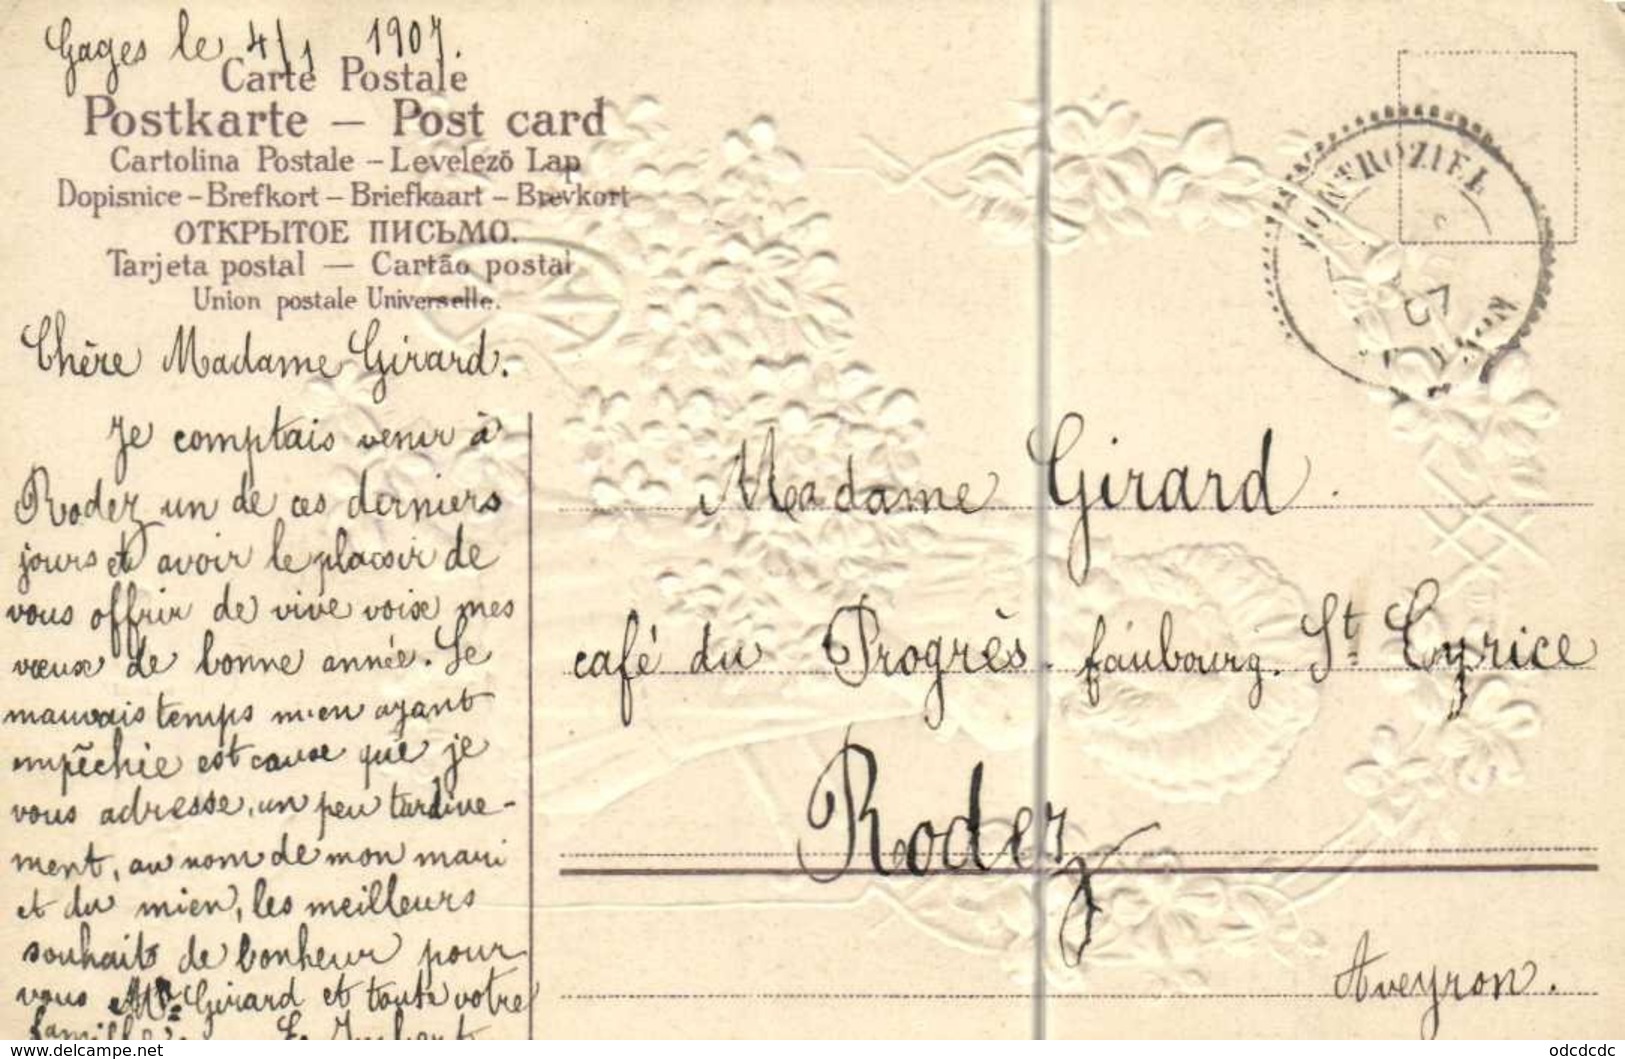 Gages le 4/1 1907.
Carte Postale
Postkarte — Post card
Cartolina Postale – Levelező Lap
Dopisnice – Brefkort – Briefkaart – Brevkort
ОТКРЫТОЕ ПИСЬМО.
Tarjeta postal — Cartão postal
Union postale Universelle.
Chère Madame Girard.
Je comptais venir à
Rodez un de ces derniers
jours et avoir le plaisir de
vous offrir de vive voix mes
vœux de bonne année. Le
mauvais temps m'en ayant
empêchée est cause que je
vous adresse, un peu tardive-
ment, au nom de mon mari
et du mien, les meilleurs
souhaits de bonheur pour
vous Mr Girard et toute votre
famille. Imbert
Madame Girard.
café du Progrès. faubourg. St Cyrice
Rodez
Aveyron.
07
odcdcdc